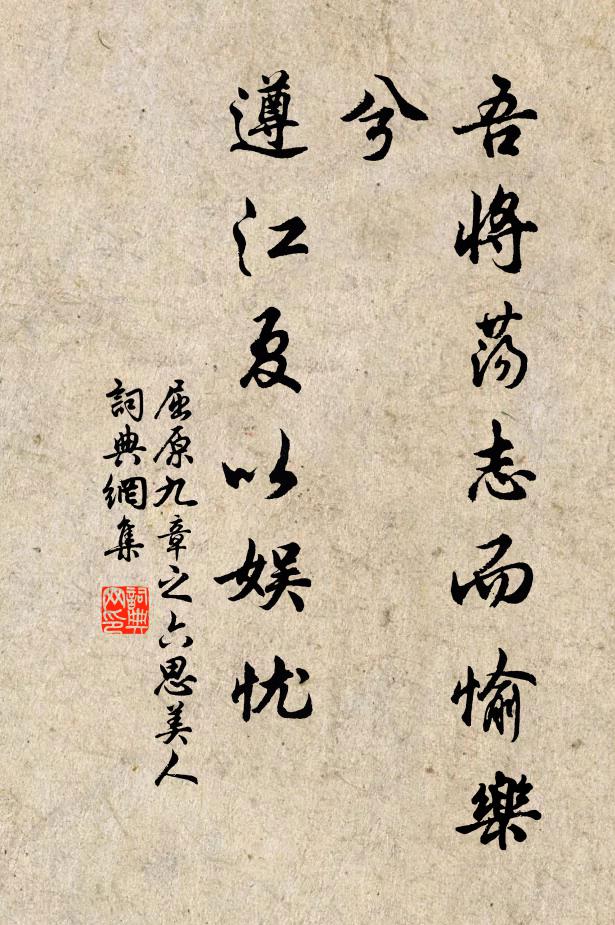 吾將蕩志而愉樂
兮
遵江夏以娱忧
屈原九章之六思美人
詞典網集
詞典网印